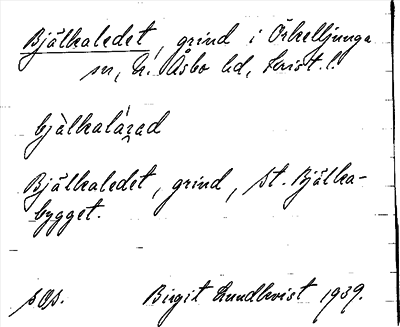 Bjälkaledet, grind i Örkelljunga
sn, N. Åsbo hd, Krist. l.
bjàlkalárad
Bjälkaledet, grind, St. Bjälka-
bygget.
sOs. Birgit Lundkvist 1939.